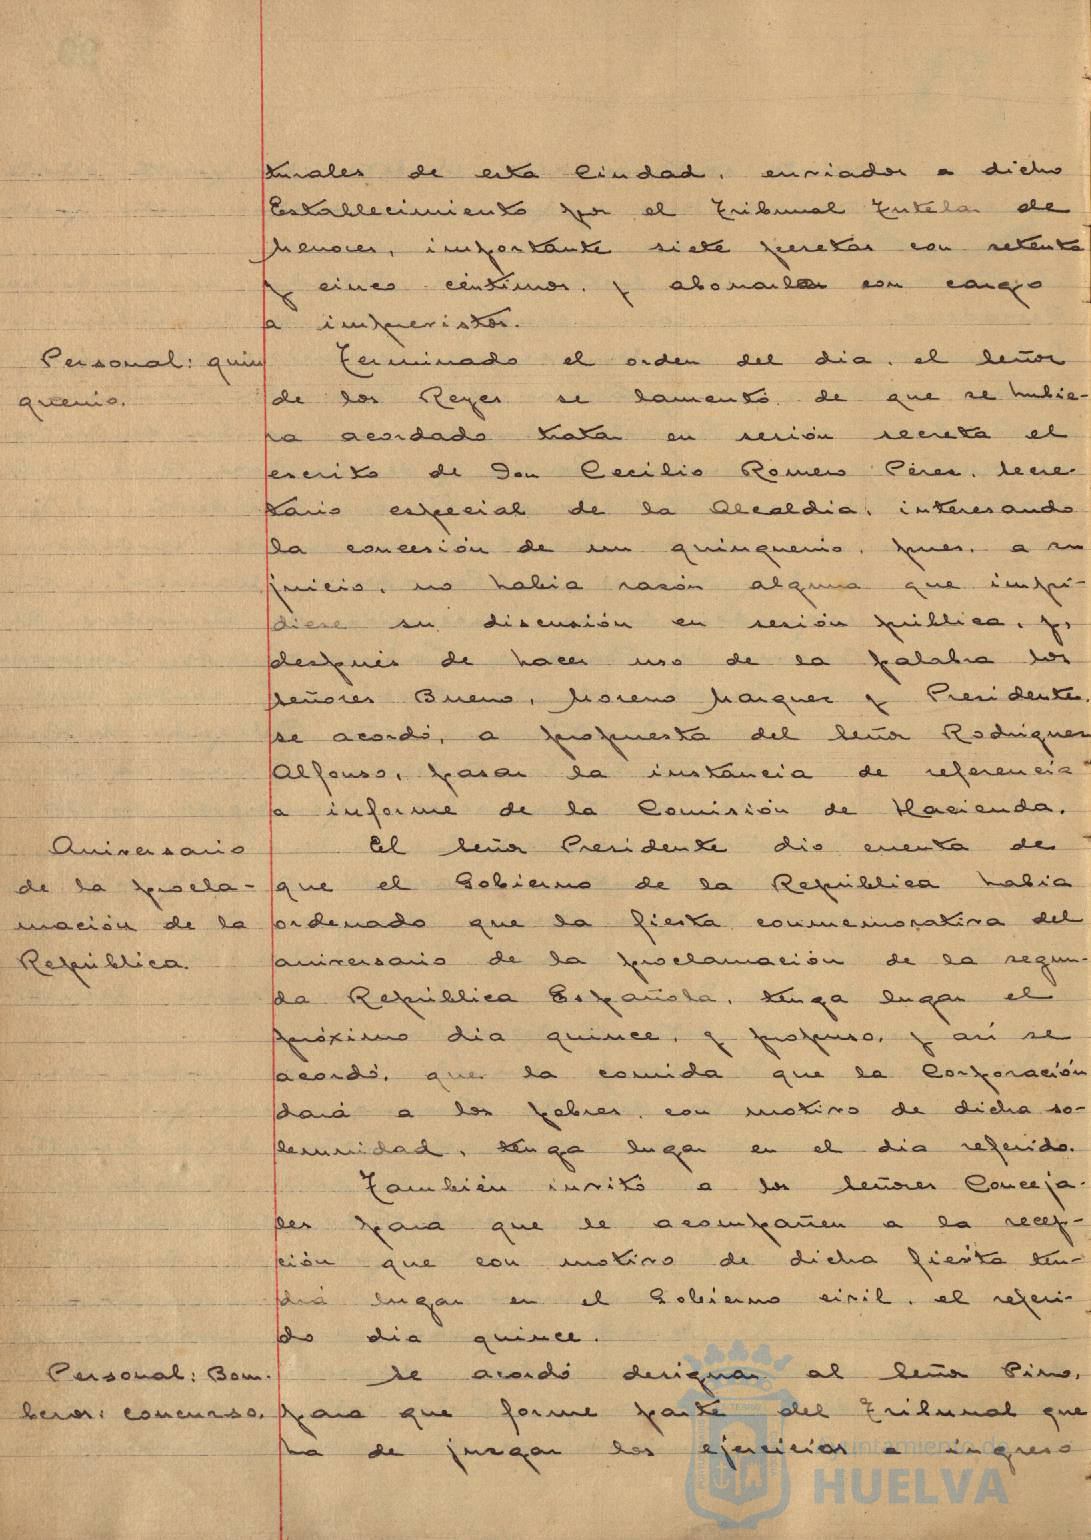 turales de esta Ciudad, enviados a dicho
Establecimiento por el Tribunal Tutelar de
Menores, importante siete pesetas con setenta
y cinco céntimos, y abonarlas con cargo
a imprevistos.
Personal: quin
quenio.
Terminado el orden del dia, el Señor
de los Reyes se lamentó de que se hubie-
ra acordado tratar en sesión secreta el
escrito de Don Cecilio Romero Pérez, Secre-
tario especial de la Alcaldia, interesando
la concesión de un quinquenio, pues, a su
juicio, no habia razón alguna que impi-
diese su discusión en sesión pública, y,
después de hacer uso de la palabra los
Señores Bueno, Moreno Marquez y Presidente,
se acordó, a propuesta del Señor Rodriguez
Alfonso, pasar la instancia de referencia
a informe de la Comisión de Hacienda.
Aniversario
de la procla-
mación de la
República.
El Señor Presidente dio cuenta de
que el Gobierno de la República habia
ordenado que la fiesta conmemorativa del
aniversario de la proclamación de la segun-
da República Española, tenga lugar el
próximo dia quince, y propuso, y asi se
acordó, que la comida que la Corporación
dará a los pobres, con motivo de dicha so-
lemnidad, tenga lugar en el dia referido.
También invitó a los Señores Conceja-
les para que le acompañen a la recep-
ción que con motivo de dicha fiesta ten-
drá lugar en el Gobierno civil, el referi-
do dia quince.
Personal: Bom-
beros: concurso.
Se acordó designar al Señor Pino,
para que forme parte del Tribunal que
ha de juzgar los ejercicios a ingreso
Ayuntamiento de
HUELVA